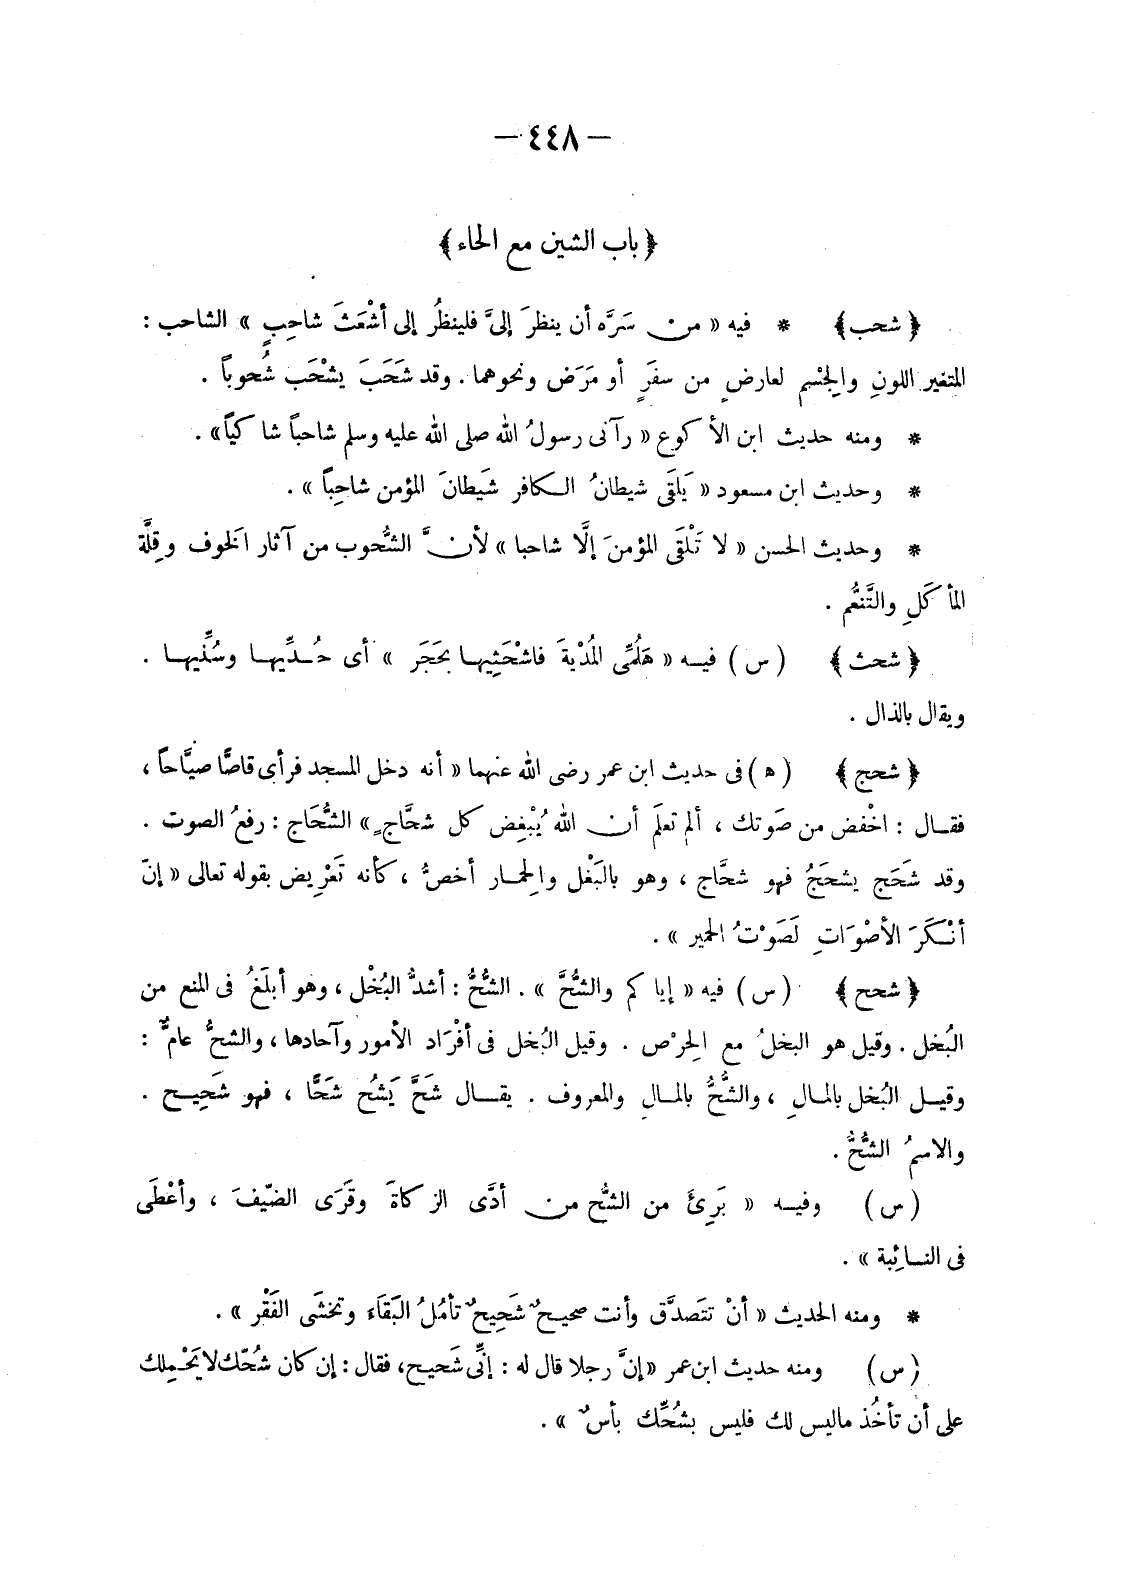 — ٤٤٨ —
﴿ باب الشين مع الحاء ﴾
﴿ شحب ﴾ * فيه « من سَرَّه أن ينظرَ إلىَّ فلينظُر إلى أشْعَثَ شاحِبٍ » الشاحب :
المتغير اللونِ والجِسْم لعارضٍ من سفَرٍ أو مَرَض ونحوهما . وقد شَحَبَ يشْحَب شُحوباً .
* ومنه حديث ابن الأكوع « رآنى رسولُ الله صلى الله عليه وسلم شاحباً شاكياً » .
* وحديث ابن مسعود « يَلقَى شيطانُ الكافر شَيطانَ المؤمن شاحِباً » .
* وحديث الحسن « لا تَلْقَى المؤمنَ إلَّا شاحبا » لأنَّ الشُّحوب من آثار الخوف وقِلَّة
المأكَلِ والتَّنعُّم .
﴿ شحث ﴾ ( س ) فيه « هَلُمِّى المُدْيةَ فاشْحَثِيها بحَجَر » أى حُدِّيها وسُنِّيها .
ويقال بالذال .
﴿ شحج ﴾ ( ه ) فى حديث ابن عمر رضى الله عنهما « أنه دخل المسجد فرأى قاصًّا صيَّاحاً ،
فقال : اخْفض من صَوتك ، ألم تعلَم أن الله يُبْغِض كل شحَّاجٍ » الشُّحَاج : رفعُ الصوت .
وقد شَحَج يشحَجُ فهو شحَّاج ، وهو بالبَغْل والحِمار أخصُّ ، كأنه تَعْرِيض بقوله تعالى « إنّ
أنْكَرَ الأصْوَاتِ لَصَوْتُ الحمير » .
﴿ شحح ﴾ ( س ) فيه « إياكم والشُّحَّ » . الشُّحُّ : أشدُّ البُخْل ، وهو أبلَغُ فى المنع من
البُخل . وقيل هو البخلُ مع الحِرْص . وقيل البُخل فى أفْرَاد الأمور وآحادها ، والشحُّ عامٌّ :
وقيل البُخل بالمالِ ، والشُّحُّ بالمالِ والمعروف . يقال شَحَّ يَشُح شَحًّا ، فهو شَحِيح .
والاسمُ الشُّحُّ .
( س ) وفيه « بَرِئَ من الشُّح من أدَّى الزكاةَ وقَرَى الضّيفَ ، وأعْطَى
فى النائِبة » .
* ومنه الحديث « أنْ تتَصدَّق وأنت صحيحٌ شَحِيحٌ تأمُلُ البَقَاءَ وتخشَى الفَقْر » .
( س ) ومنه حديث ابن عمر « إنَّ رجلا قال له : إنِّى شَحيح، فقال : إن كان شُحّك لا يَحْمِلك
على أن تأخُذ ماليس لك فليس بشُحِّك بأسٌ » .